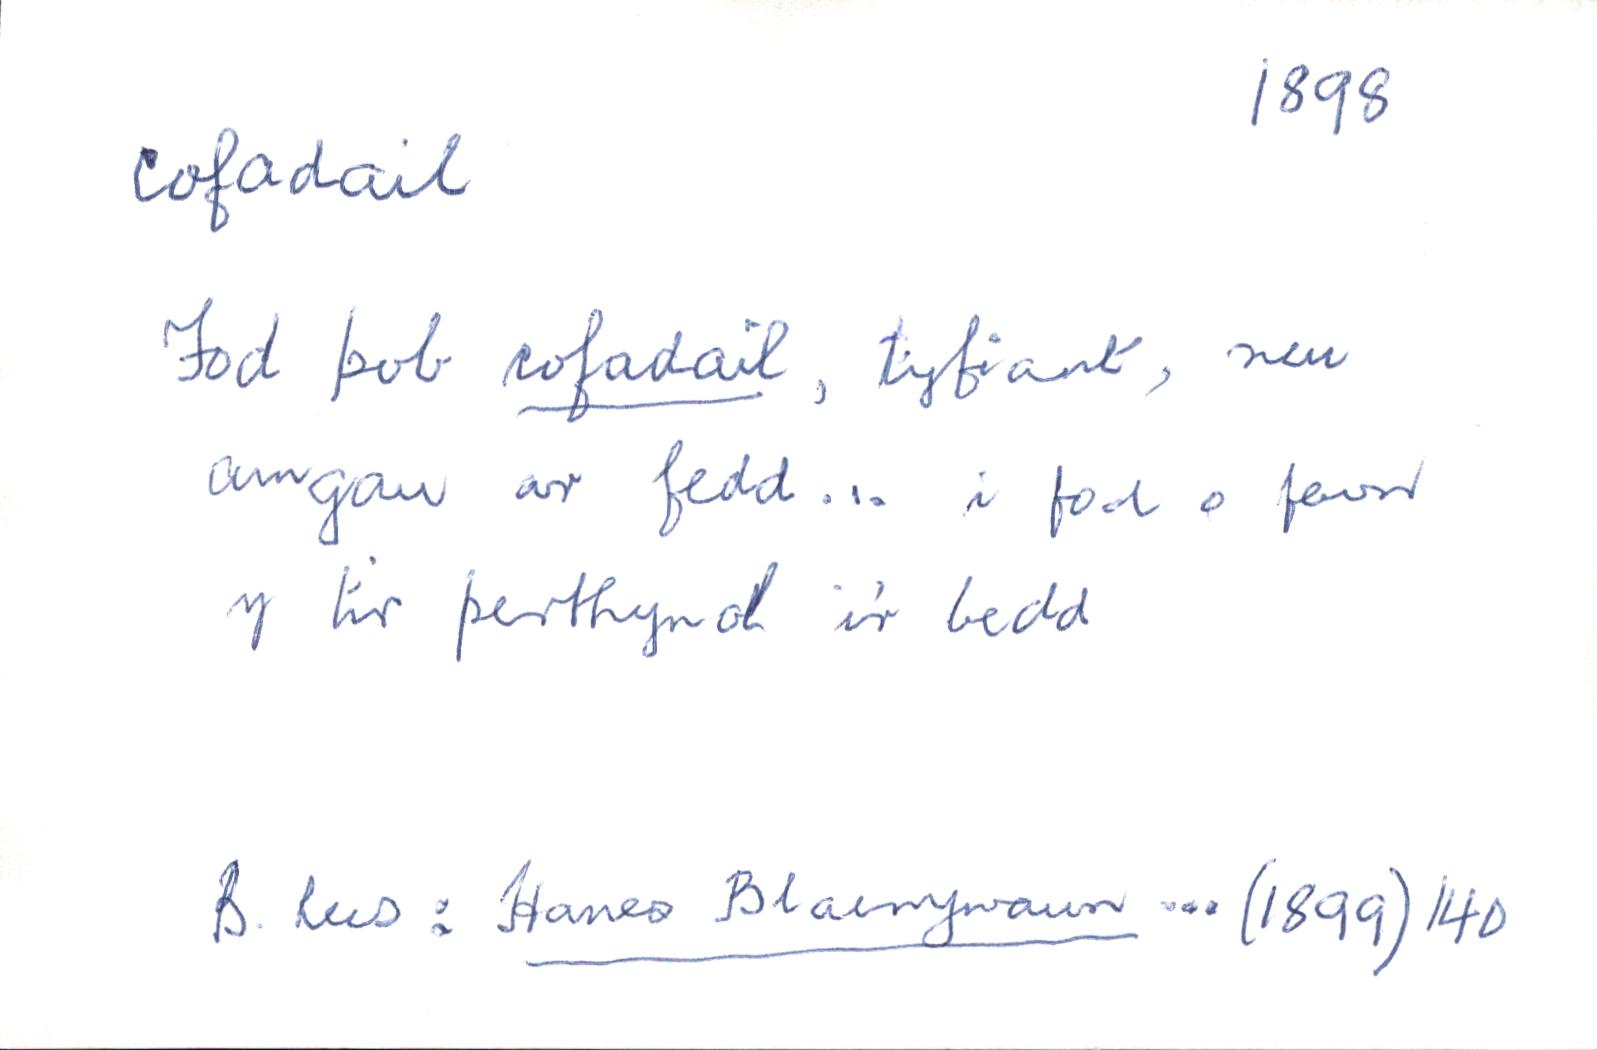 1898
cofadail
Fod pob cofadail, tyfiant, neu
amgau ar fedd... i fod o fewn
y tir perthynol i'r bedd
B. Rees: Hanes Blaenywaun ... (1899) 140